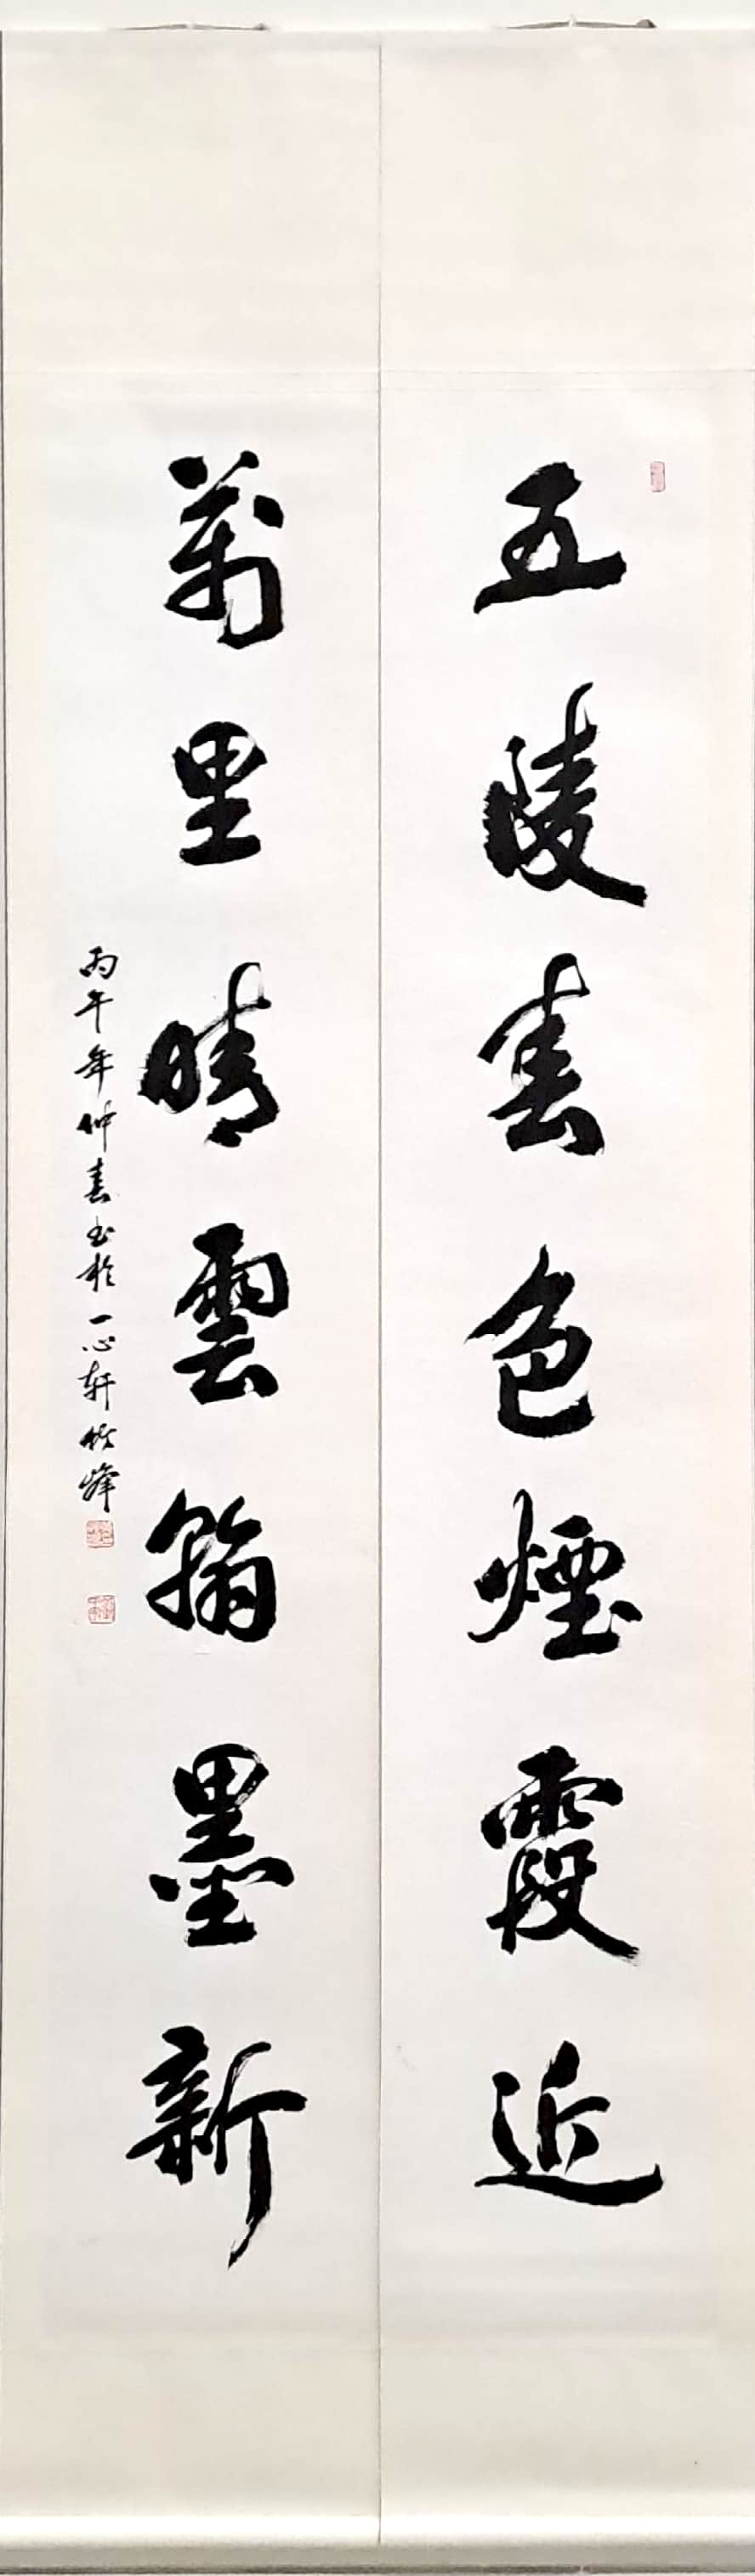 五陵春色煙霞近
萬里晴雲翰墨新
丙午年仲春书於一心轩竹峰